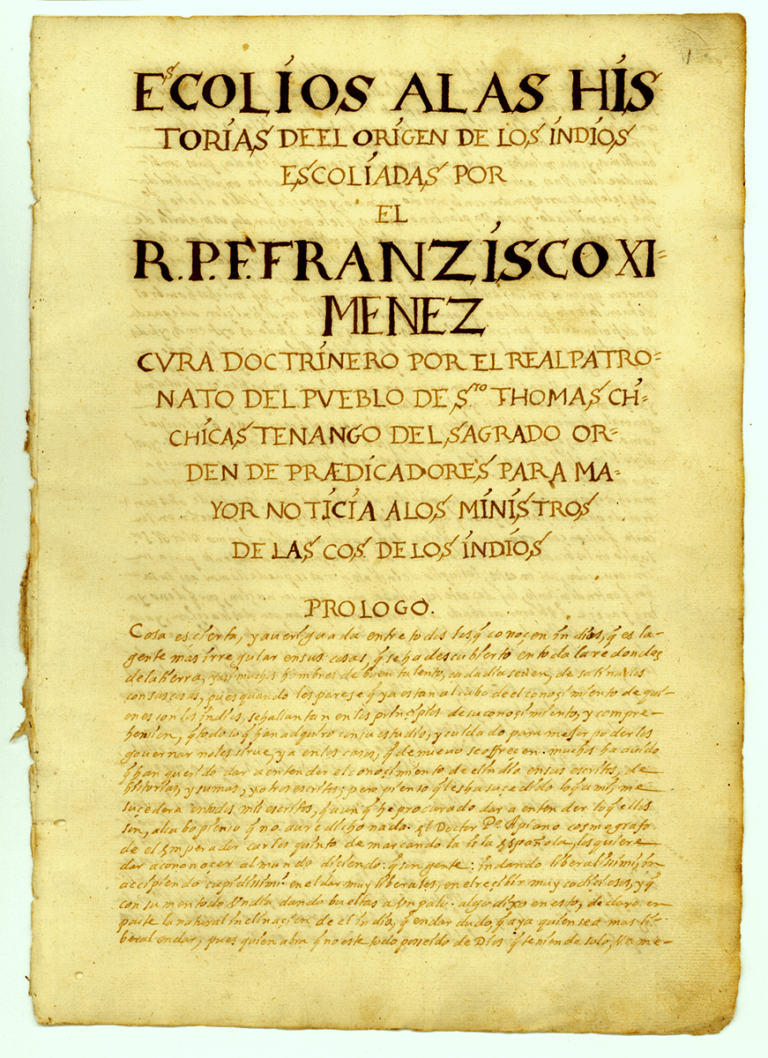 1
EsCOLIOS A LAS HIS
TORIAS DE EL ORIGEN DE LOS INDIOS
ESCOLIADAS POR
EL
R.P.F. FRANZISCO XI=
MENEZ
CVRA DOCTRINERO POR EL REAL PATRO=
NATO DEL PVEBLO DE S.to THOMAS CHI=
CHICAS TENANGO DEL SAGRADO OR=
DEN DE PRÆDICADORES PARA MA=
YOR NOTICIA A LOS MINISTROS
DE LAS COS DE LOS INDIOS
PROLOGO.
Cosa es cierta, y averiguada entre todos los q conoçen indios, q es la
gente mas irregular en sus cosas, q se ha descubierto en toda la redondes
de la tierra, y ay muchos hombres de buen talento, cada dia se ven, desatinarles
con sus cosas, pues quando les parese q ya estan al cabo de el conosimiento de qui-
enes son los indios, se hallan tan en los prinsipios de su conosimiento, y compre-
hension, q todo lo q han adquiro con su estudio, y cuidado para mejor poderlos
governar no les sirve, ya en los casos, q de nuevo se offrecen. muchos ha avido
q han querido dar a entender el conosimiento de el indio en sus escritos, de
historias, y sumas, y otros escritos; pero pienso q les ha sucedido lo q a mi, me
sucedera en todos mis escritos, q aun q he procurado dar a entender lo q ellos
son, al cabo pienso q no avre dicho nada. El Doctor P.o Apiano cosmografo
de el Emperador carlos quinto demarcando la isla Española, los quiere
dar a conoçer al mundo disiendo. q son gente: in dando liberalisimi, in
accipiendo cupidissimi en el dar muy liberales, en el resibir muy codiciosos, y q
con su mentado
dando bueltas a un palo. algo dixo en esto, declaro en
parte la natural inclinaçion de el indio, q en dar dudo, q aya quien sea mas li-
beral en dar, pues quien abra q no este todo poseido de Dios q teniendo solo,